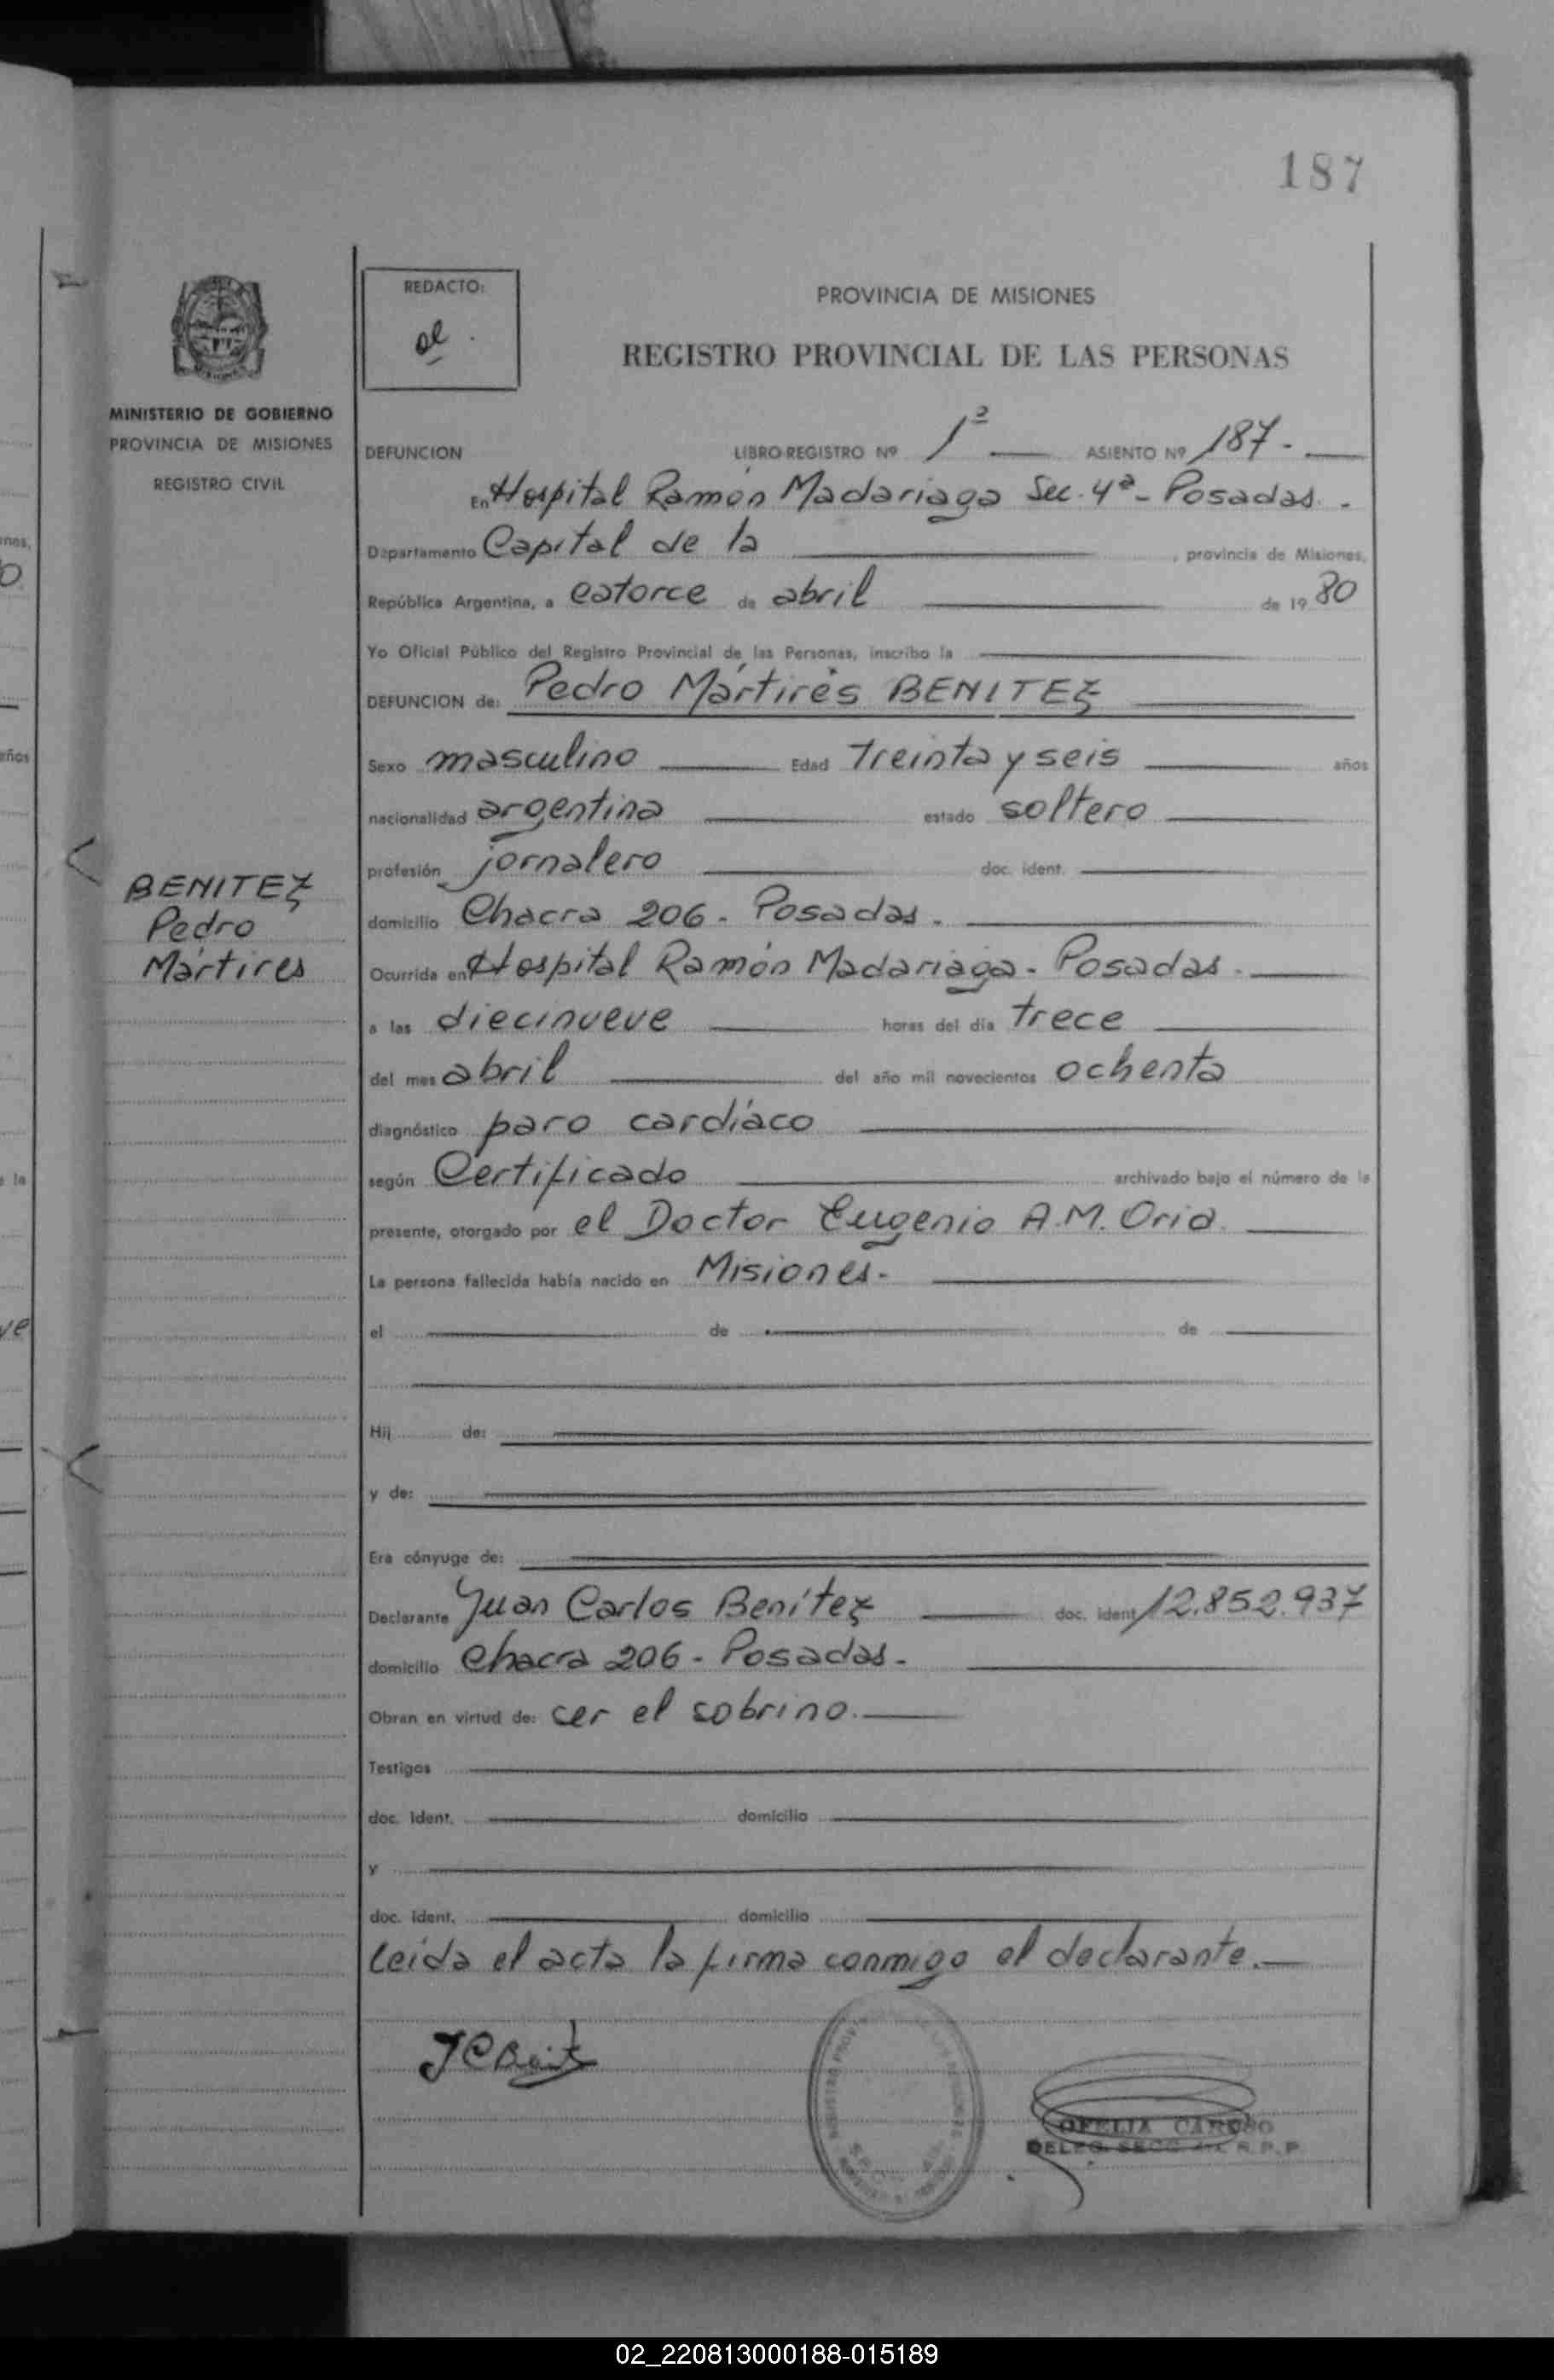 187
REDACTO:
MINISTERIO DE GOBIERNO
PROVINCIA DE MISIONES
REGISTRO CIVIL
BENITEZ
Pedro
Mártires
PROVINCIA DE MISIONES
REGISTRO PROVINCIAL DE LAS PERSONAS
DEFUNCION LIBRO-REGISTRO Nº 1º ASIENTO Nº 187.-
En Hospital Ramón Madariaga Sec. 4ª - Posadas. -
Departamento Capital de la , provincia de Misiones,
República Argentina, a catorce de abril de 19 80
Yo Oficial Público del Registro Provincial de las Personas, inscribo la
DEFUNCION de: Pedro Mártires BENITEZ
Sexo masculino Edad treinta y seis años
nacionalidad argentina estado soltero
profesión jornalero doc. ident.
domicilio Chacra 206 - Posadas.
Ocurrida en Hospital Ramón Madariaga - Posadas.
a las diecinueve horas del día trece
del mes abril del año mil novecientos ochenta
diagnóstico paro cardíaco
según Certificado archivado bajo el número de la
presente, otorgado por el Doctor Eugenio A.M. Oria.
La persona fallecida había nacido en Misiones.-
el de de
Hij de:
y de:
Era cónyuge de:
Declarante Juan Carlos Benítez doc. ident. 12.852.937
domicilio Chacra 206 - Posadas.
Obran en virtud de: ser el sobrino.
Testigos
doc. ident. domicilio
y
doc. ident. domicilio
Leída el acta la firma conmigo el declarante.
OFELIA CARUSO
DELEG. SECC. R.P.P.
02_220813000188-015189